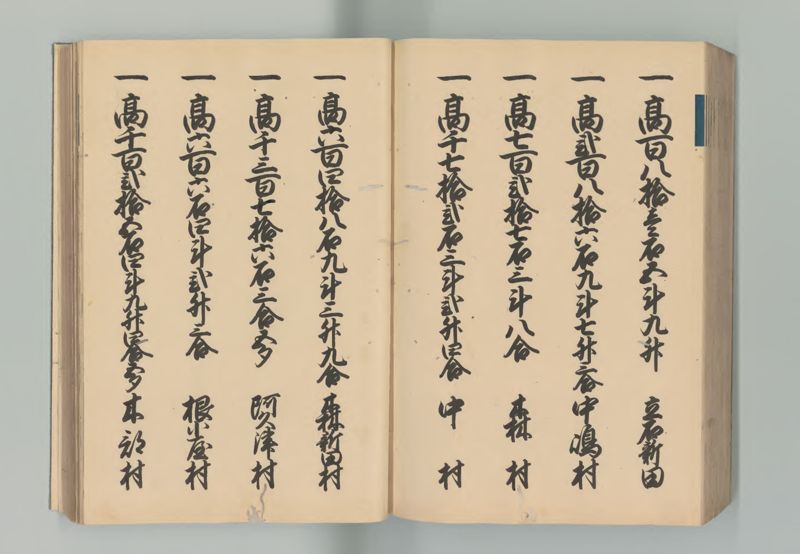 一高百八拾壱石五斗九升 立石新田
一高弐百八拾六石九斗七升三合 中嶋村
一高七百弐拾七石三斗八合 本郷村
一高千七拾弐石三斗弐升四合 中村
一高六百四拾八石九斗三升九合 森新田村
一高千三百七拾六石三合五夕 阿久津村
一高六百六石四斗弐升三合 根小屋村
一高千百弐拾五石四斗九升四合五夕 木部村